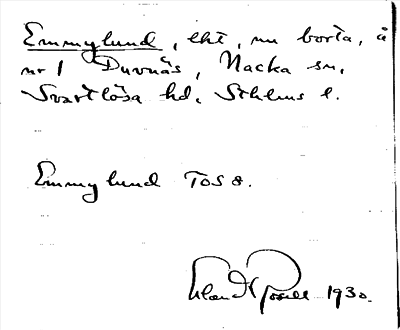 Emmylund, lht, nu borta, å
nr 1 Duvnäs, Nacka sn,
Svartlösa hd, Sthlms l.
Emmylund TOS 8.
1930.